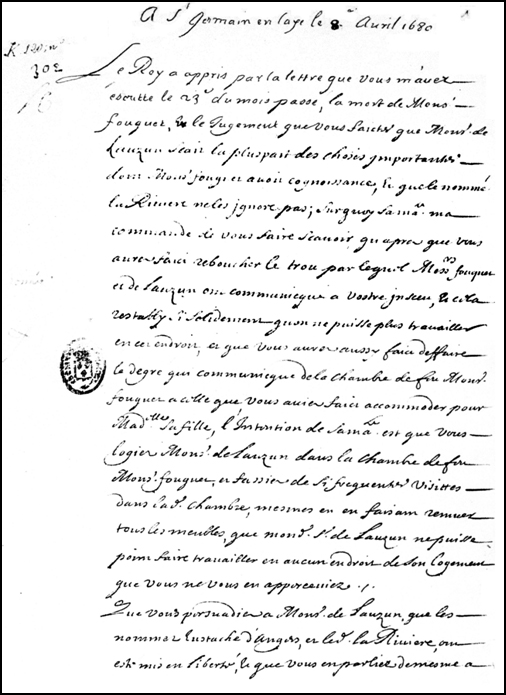 A St Germain en Laye le 8e Avril 1680
Kt 120, no
302
Le Roy a appris par la lettre que vous m'avez
escritte le 23e du mois passé, la mort de Monsr
fouquet, & le Jugement que vous faictes que Monsr de
Lauzun sçait la pluspart des choses importantes
dont Monsr fouquet avoit cognoissance, & que le nommé
la Riviere ne les ignore pas; sur quoy Sa Maté m'a
commandé de vous faire sçavoir qu'apres que vous
aurez faict reboucher le trou par lequel Messrs fouquet
et de Lauzun ont communicqué a vostre insceu, & cela
restably si solidement qu'on ne puisse plus travailler
en cet endroit, et que vous aurez aussy faict deffaire
le degré qui communicque de la chambre de feu Monsr
fouquet a celle que vous aviez faict accommoder pour
Madlle sa fille, l'Intention de Sa Maté est que vous
logiez Monsr de Lauzun dans la chambre de feu
Monsr fouquet, et fassiez de si frequentes visittes
dans lad. chambre, mesmes en en faisant remuer
tous les meubles, que mond. Sr de Lauzun ne puisse
point faire travailler en aucun endroit de son logement
que vous ne vous en apperceviez ./.
Que vous persuadiez a Monsr de Lauzun que les
nommez Eustache d'Angers, et led. la Riviere, ont
esté mis en liberté, & que vous en parliez de mesme a